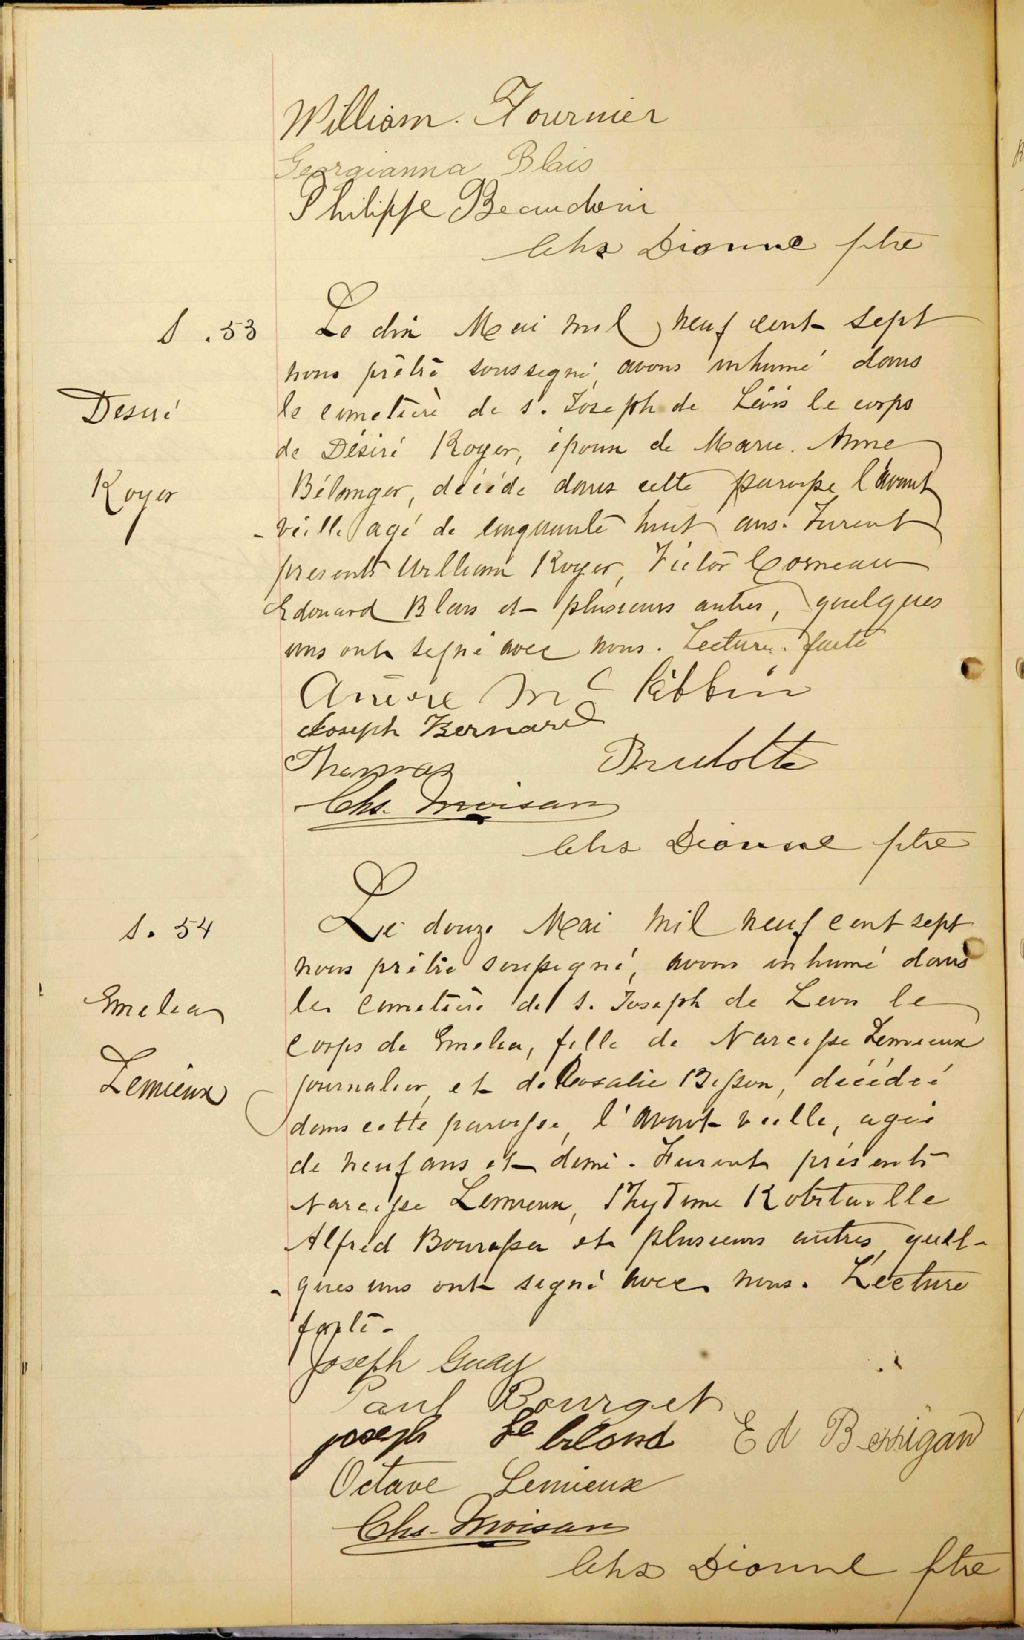 William Fournier
Georgianna Blais
Philippe Beaudoin
Chs Dionne ptre
S. 53
Désiré
Royer
Le dix Mai mil neuf cent sept
nous prêtre soussigné, avons inhumé dans
le cimetière de S. Joseph de Lévis le corps
de Désiré Royer, époux de Marie Anne
Bélanger, décédé dans cette paroisse l'avant
-veille agé de cinquante huit ans. Furent
présents William Royer, Victor Corneau
Edouard Blais et plusieurs autres, quelques
uns ont signé avec nous. Lecture faite
Mc Kibbin
Joseph Bernard
Thomas Bridotte
Chs. Moisan
Chs Dionne ptre
S. 54
Emelia
Lemieux
Le douze Mai mil neuf cent sept
nous prêtre soussigné, avons inhumé dans
le cimetière de S. Joseph de Levis le
corps de Emelia, fille de Narcisse Lemieux
journalier, et de Rosalie Besson, décédée
dans cette paroisse, l'avant veille, agée
de neuf ans et demi. Furent présents
Narcisse Lemieux, Robitaille
Alfred Bourassa et plusieurs autres, quel-
-ques uns ont signé avec nous. Lecture
faite.
Joseph Guay
Paul Bourget
Joseph Le blond Ed Berrigan
Octave Lemieux
Chs. Moisan
Chs Dionne ptre